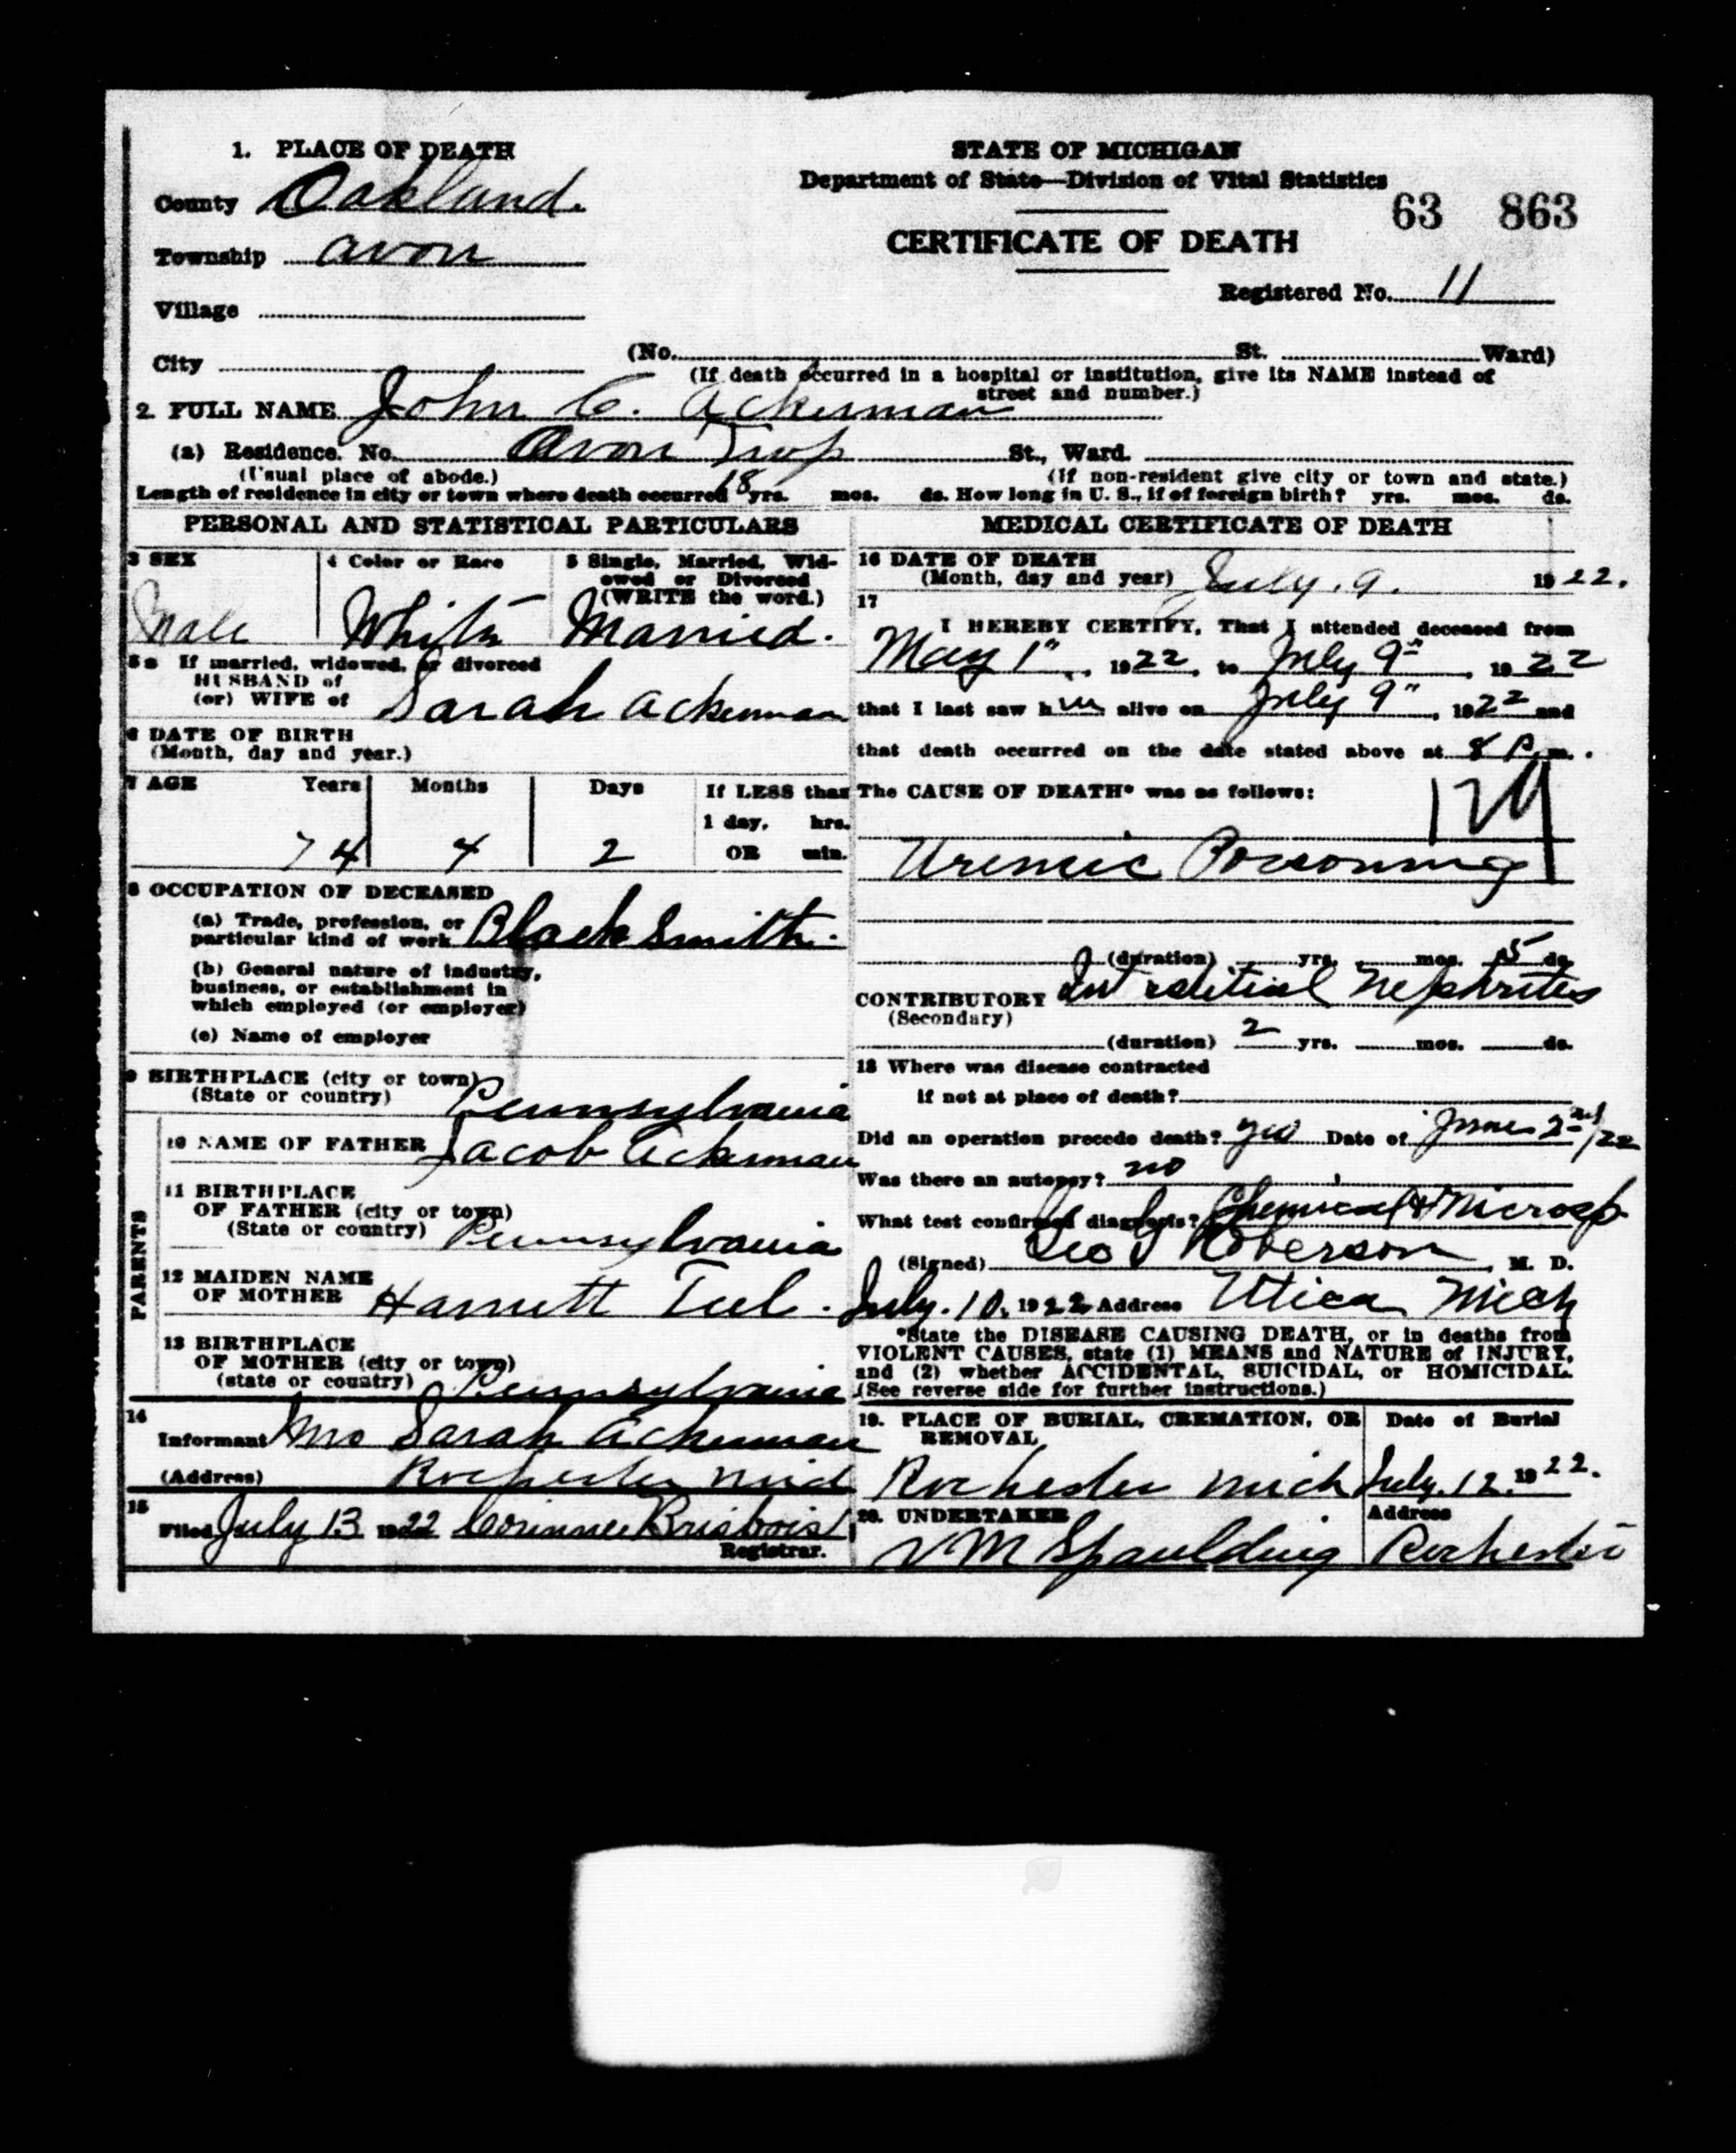 1. PLACE OF DEATH
County Oakland.
Township Avon
Village
City
STATE OF MICHIGAN
Department of State—Division of Vital Statistics
63 863
CERTIFICATE OF DEATH
Registered No. 11
(No. St. Ward)
(If death occurred in a hospital or institution, give its NAME instead of
street and number.)
2. FULL NAME John C. Ackerman
(a) Residence. No. Avon Twp St., Ward.
(Usual place of abode.) (If non-resident give city or town and state.)
Length of residence in city or town where death occurred 18 yrs. mos. ds. How long in U. S., if of foreign birth? yrs. mos. ds.
PERSONAL AND STATISTICAL PARTICULARS
3 SEX
Male
4 Color or Race
White
5 Single, Married, Wid-
owed or Divorced
(WRITE the word.)
Married.
5a If married, widowed, or divorced
HUSBAND of
(or) WIFE of Sarah Ackerman
6 DATE OF BIRTH
(Month, day and year.)
7 AGE Years Months Days If LESS than
1 day, hrs.
74 4 2 OR min.
8 OCCUPATION OF DECEASED
(a) Trade, profession, or
particular kind of work Black Smith.
(b) General nature of industry,
business, or establishment in
which employed (or employer)
(c) Name of employer
9 BIRTHPLACE (city or town)
(State or country) Pennsylvania
PARENTS
10 NAME OF FATHER Jacob Ackerman
11 BIRTHPLACE
OF FATHER (city or town)
(State or country) Pennsylvania
12 MAIDEN NAME
OF MOTHER Harriett Teel.
13 BIRTHPLACE
OF MOTHER (city or town)
(state or country) Pennsylvania
14
Informant Mrs Sarah Ackerman
(Address) Rochester Mich
15
Filed July 13 1922 Corinne Brisbois
Registrar.
MEDICAL CERTIFICATE OF DEATH
16 DATE OF DEATH
(Month, day and year) July. 9. 1922.
17
I HEREBY CERTIFY, That I attended deceased from
May 1", 1922, to July 9", 1922
that I last saw him alive on July 9", 1922 and
that death occurred on the date stated above at 8 P. m.
The CAUSE OF DEATH* was as follows:
129
Uremic Poisoning
(duration) yrs. mos. 15 ds.
CONTRIBUTORY Interstitial Nephritis
(Secondary)
(duration) 2 yrs. mos. ds.
18 Where was disease contracted
if not at place of death?
Did an operation precede death? yes Date of June 2nd/22
Was there an autopsy? no
What test confirmed diagnosis? Chemical & Microsp
(Signed) Geo J Roberson, M. D.
July. 10. 1922 Address Utica Mich
*State the DISEASE CAUSING DEATH, or in deaths from
VIOLENT CAUSES, state (1) MEANS and NATURE of INJURY,
and (2) whether ACCIDENTAL, SUICIDAL, or HOMICIDAL.
(See reverse side for further instructions.)
19. PLACE OF BURIAL, CREMATION, OR
REMOVAL
Rochester Mich
Date of Burial
July. 12. 1922.
20. UNDERTAKER
V M Spaulding
Address
Rochester